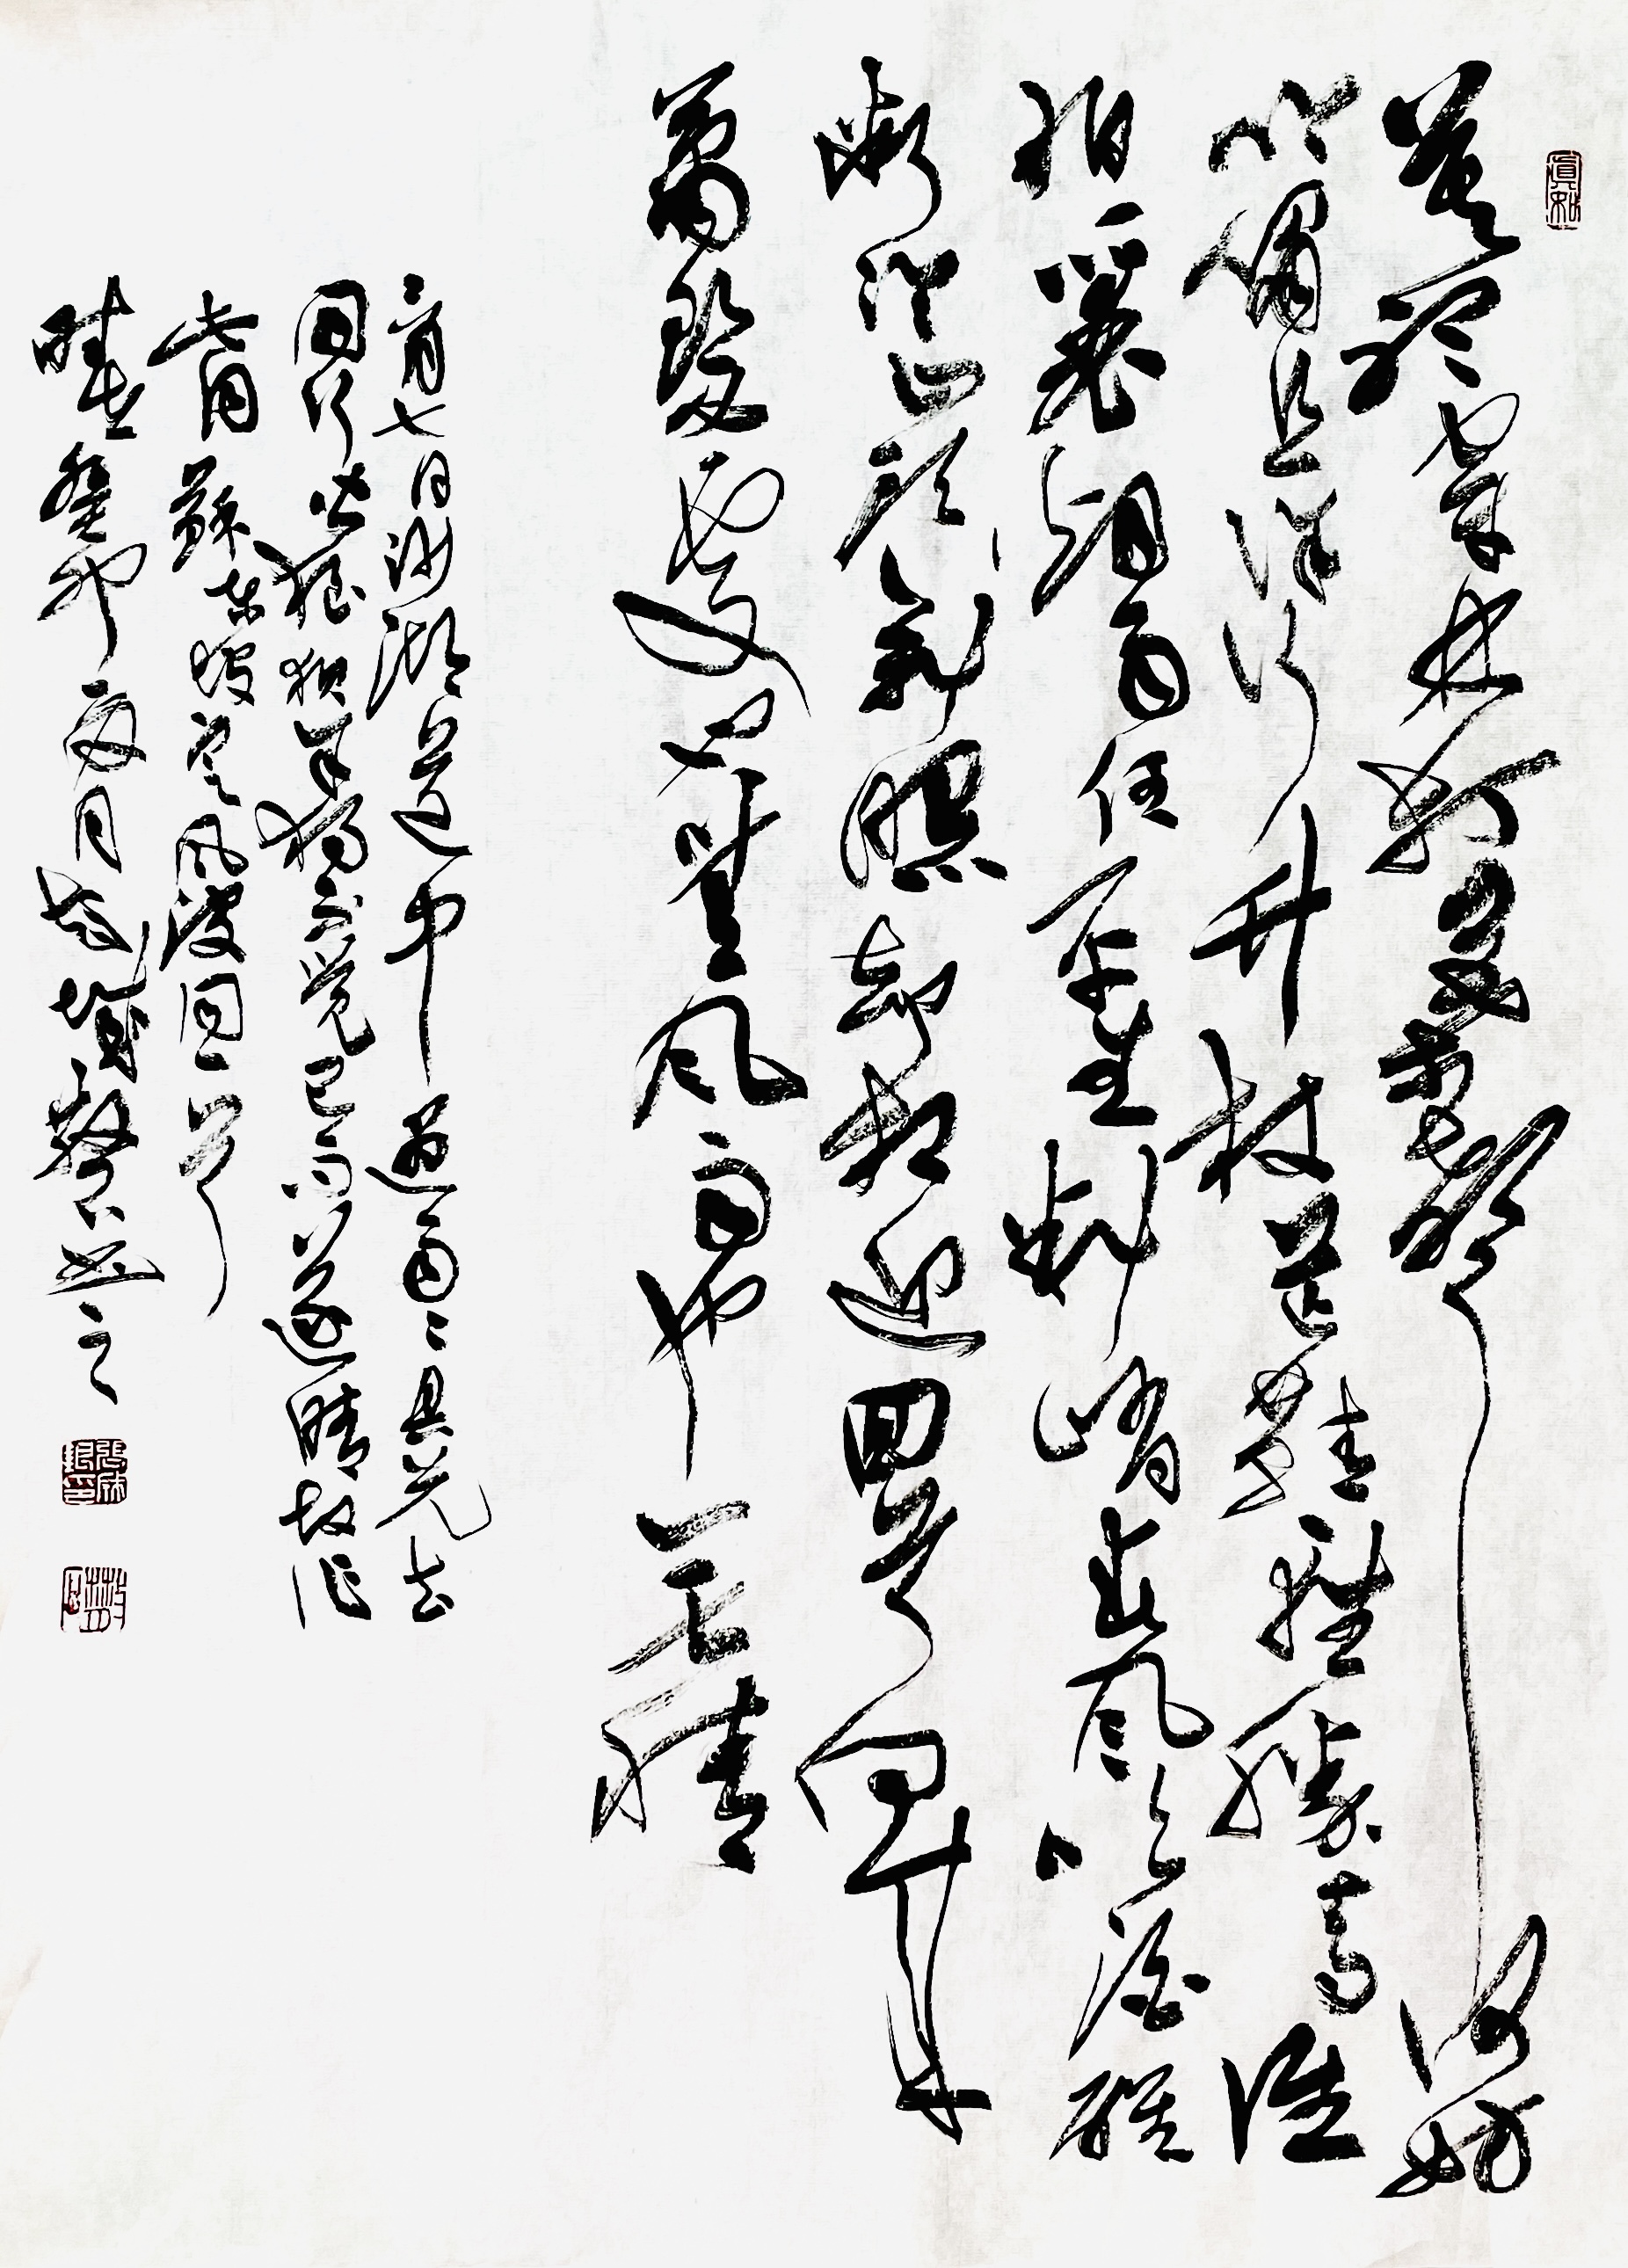 莫聽穿林打葉聲何妨
吟嘯且徐行竹杖芒鞋輕勝馬誰
怕一蓑煙雨任平生料峭春風吹酒醒
微冷山頭斜照却相迎回首向來
蕭瑟處也無風雨也無晴
三月七日沙湖道中遇雨〻具先去
同行皆狼狽余獨不覺已而遂晴故作
此詞蘇東坡定風波回首
時在癸卯夏月於城書之